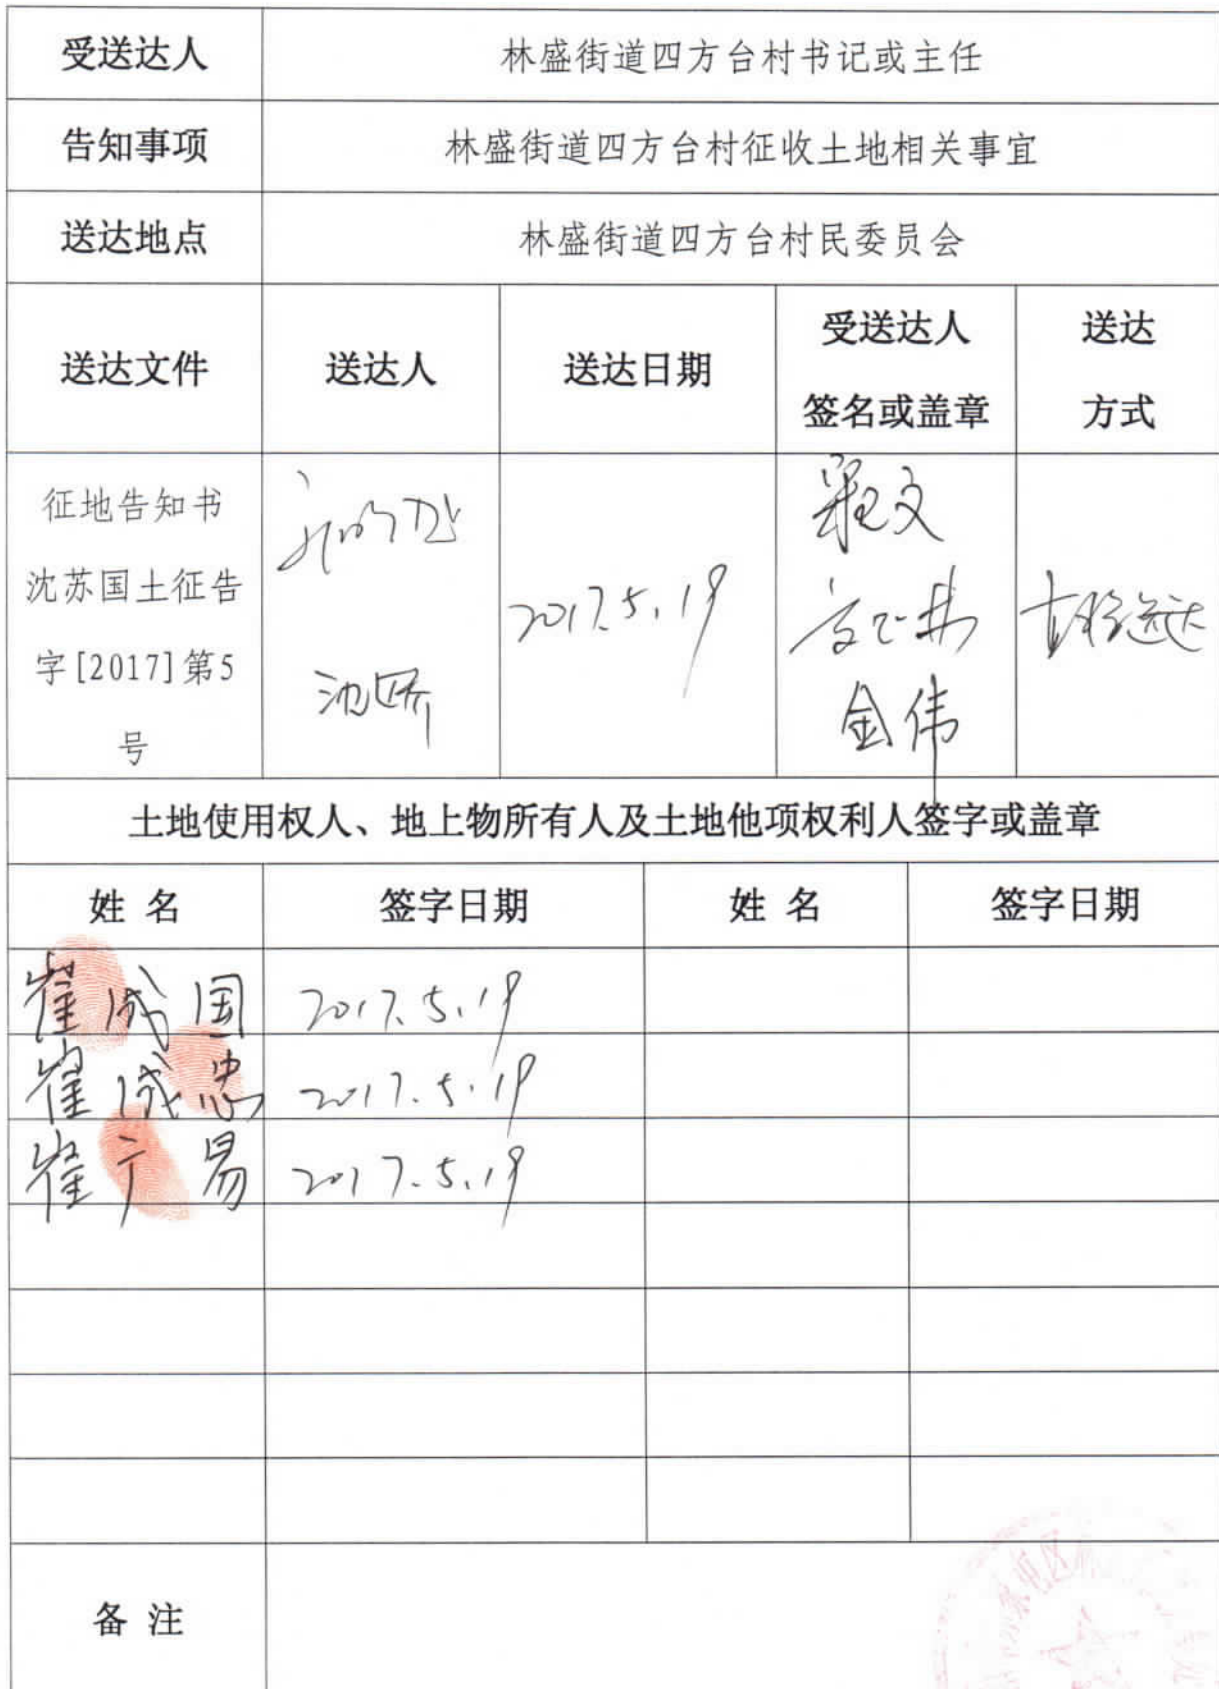 受送达人 林盛街道四方台村书记或主任
告知事项 林盛街道四方台村征收土地相关事宜
送达地点 林盛街道四方台村民委员会
送达文件 送达人 送达日期 受送达人 签名或盖章 送达 方式
征地告知书
沈苏国土征告
字[2017]第5
号
2017.5.19
金伟
送达
土地使用权人、地上物所有人及土地他项权利人签字或盖章
姓 名 签字日期 姓 名 签字日期
崔成国 2017.5.19
崔成忠 2017.5.19
崔广易 2017.5.19
备 注